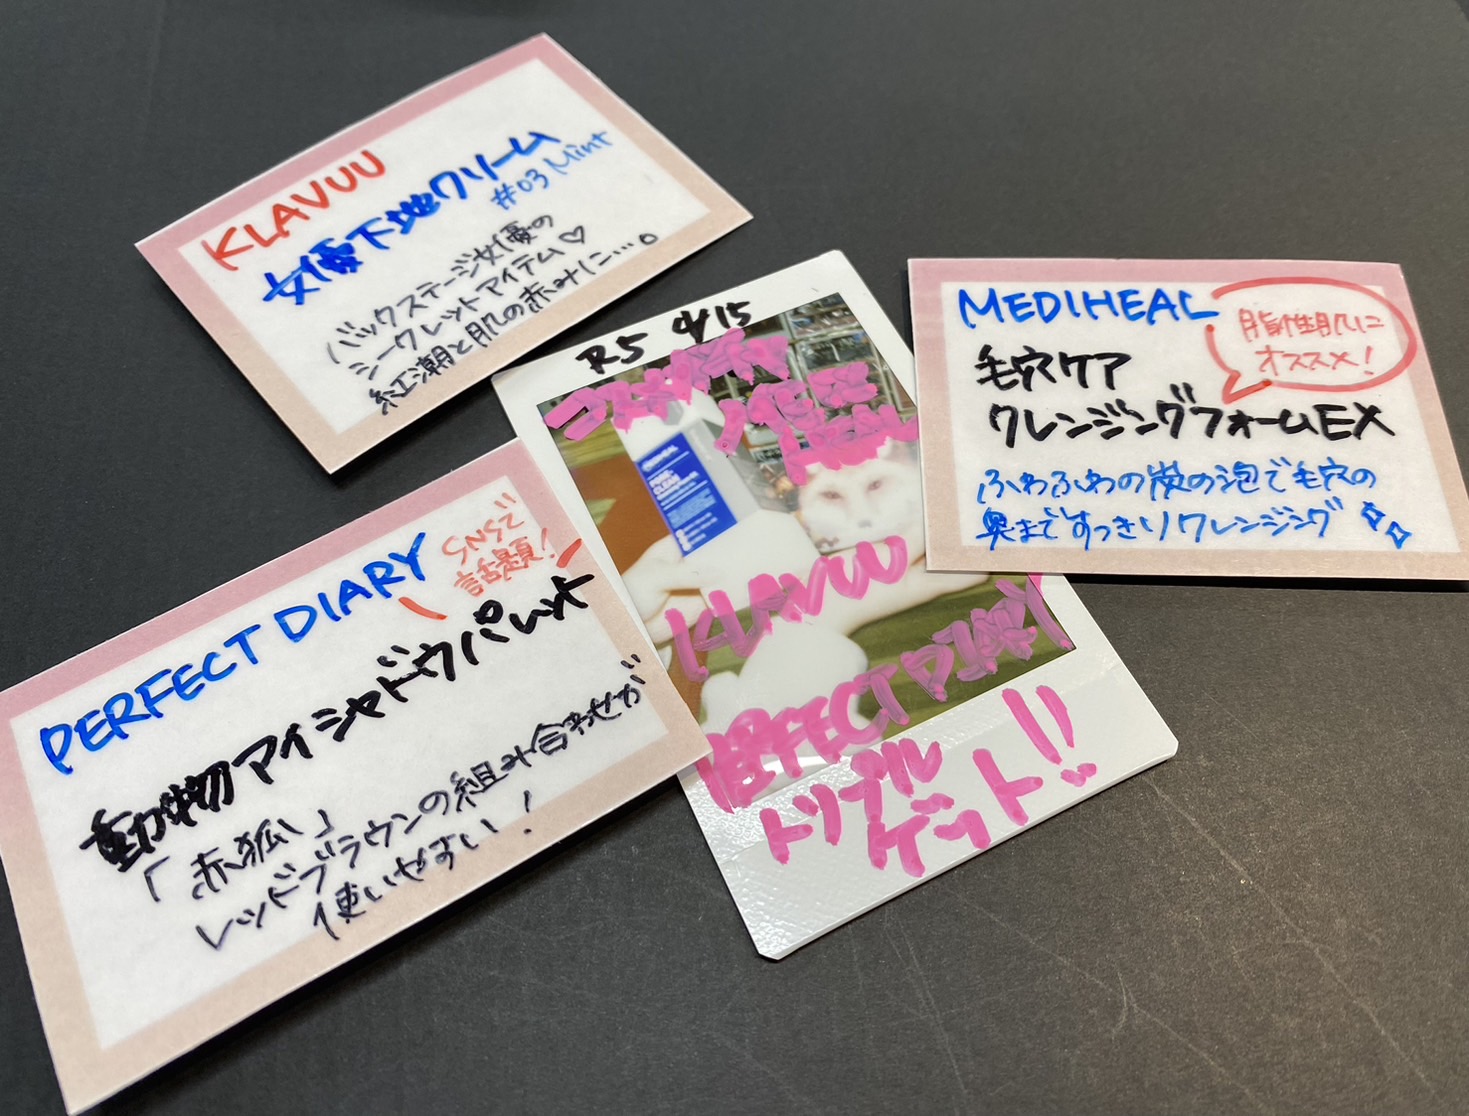 KLAVUU
女優下地クリーム
#03 Mint
バックステージ女優の
シークレットアイテム♡
紅潮と肌の赤みに…。
R5 9/15
KLAVUU
PERFECT DIARY
トリプル
ゲット!!
MEDIHEAL
脂性肌に
オススメ!
毛穴ケア
クレンジングフォームEX
ふわふわの炭の泡で毛穴の
奥まですっきりクレンジング
PERFECT DIARY
SNSで
話題!
動物アイシャドウパレット
「赤狐」
レッドブラウンの組み合わせが
使いやすい!